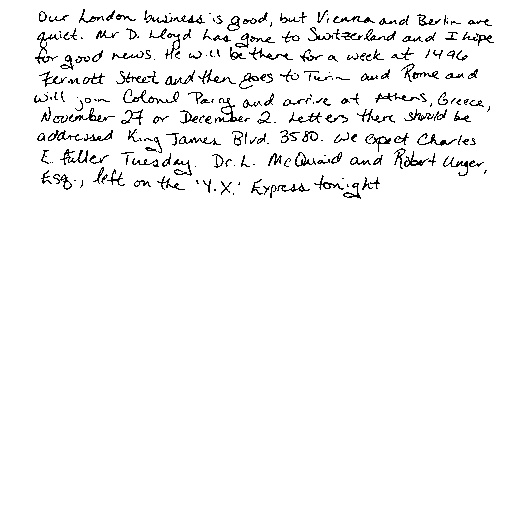 Our London business is good, but Vienna and Berlin are
quiet. Mr D. Lloyd has gone to Switzerland and I hope
for good news. He will be there for a week at 1496
Zermott Street and then goes to Turin and Rome and
will join Colonel Parry and arrive at Athens, Greece,
November 27 or December 2. Letters there should be
addressed King James Blvd. 3580. We expect Charles
E. Fuller Tuesday. Dr. L. McQuaid and Robert Unger,
Esq., left on the 'Y.X.' Express tonight